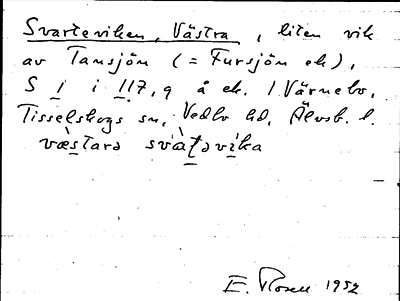 Svarteviken, Västra, liten vik
av Tansjön (= Fursjön ek),
S 1 i 117,9 å ek. 1 Värnebo,
Tisselskogs sn, Vedbo hd, Älvsb. l.
væ̀starə svàt̠əvika
E. Rosell 1952